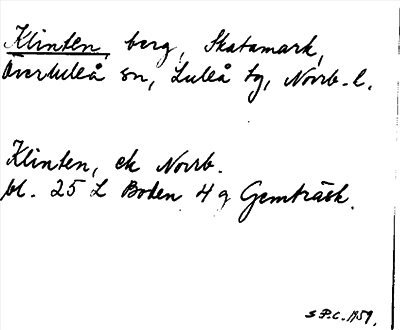 Klinten, berg, Skatamark,
Överluleå sn, Luleå tg, Norrb. l.
Klinten, ek Norrb.
bl. 25 L Boden 4 g Gemträsk.
S P.C. 1959.